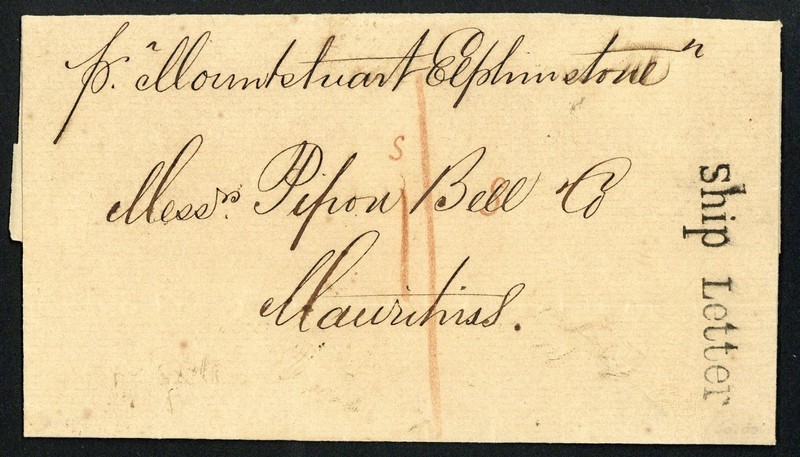 pr. "Mountstuart Elphinstone"
Messrs. Pipon Bell & Co
Mauritius.
Ship Letter
S
8